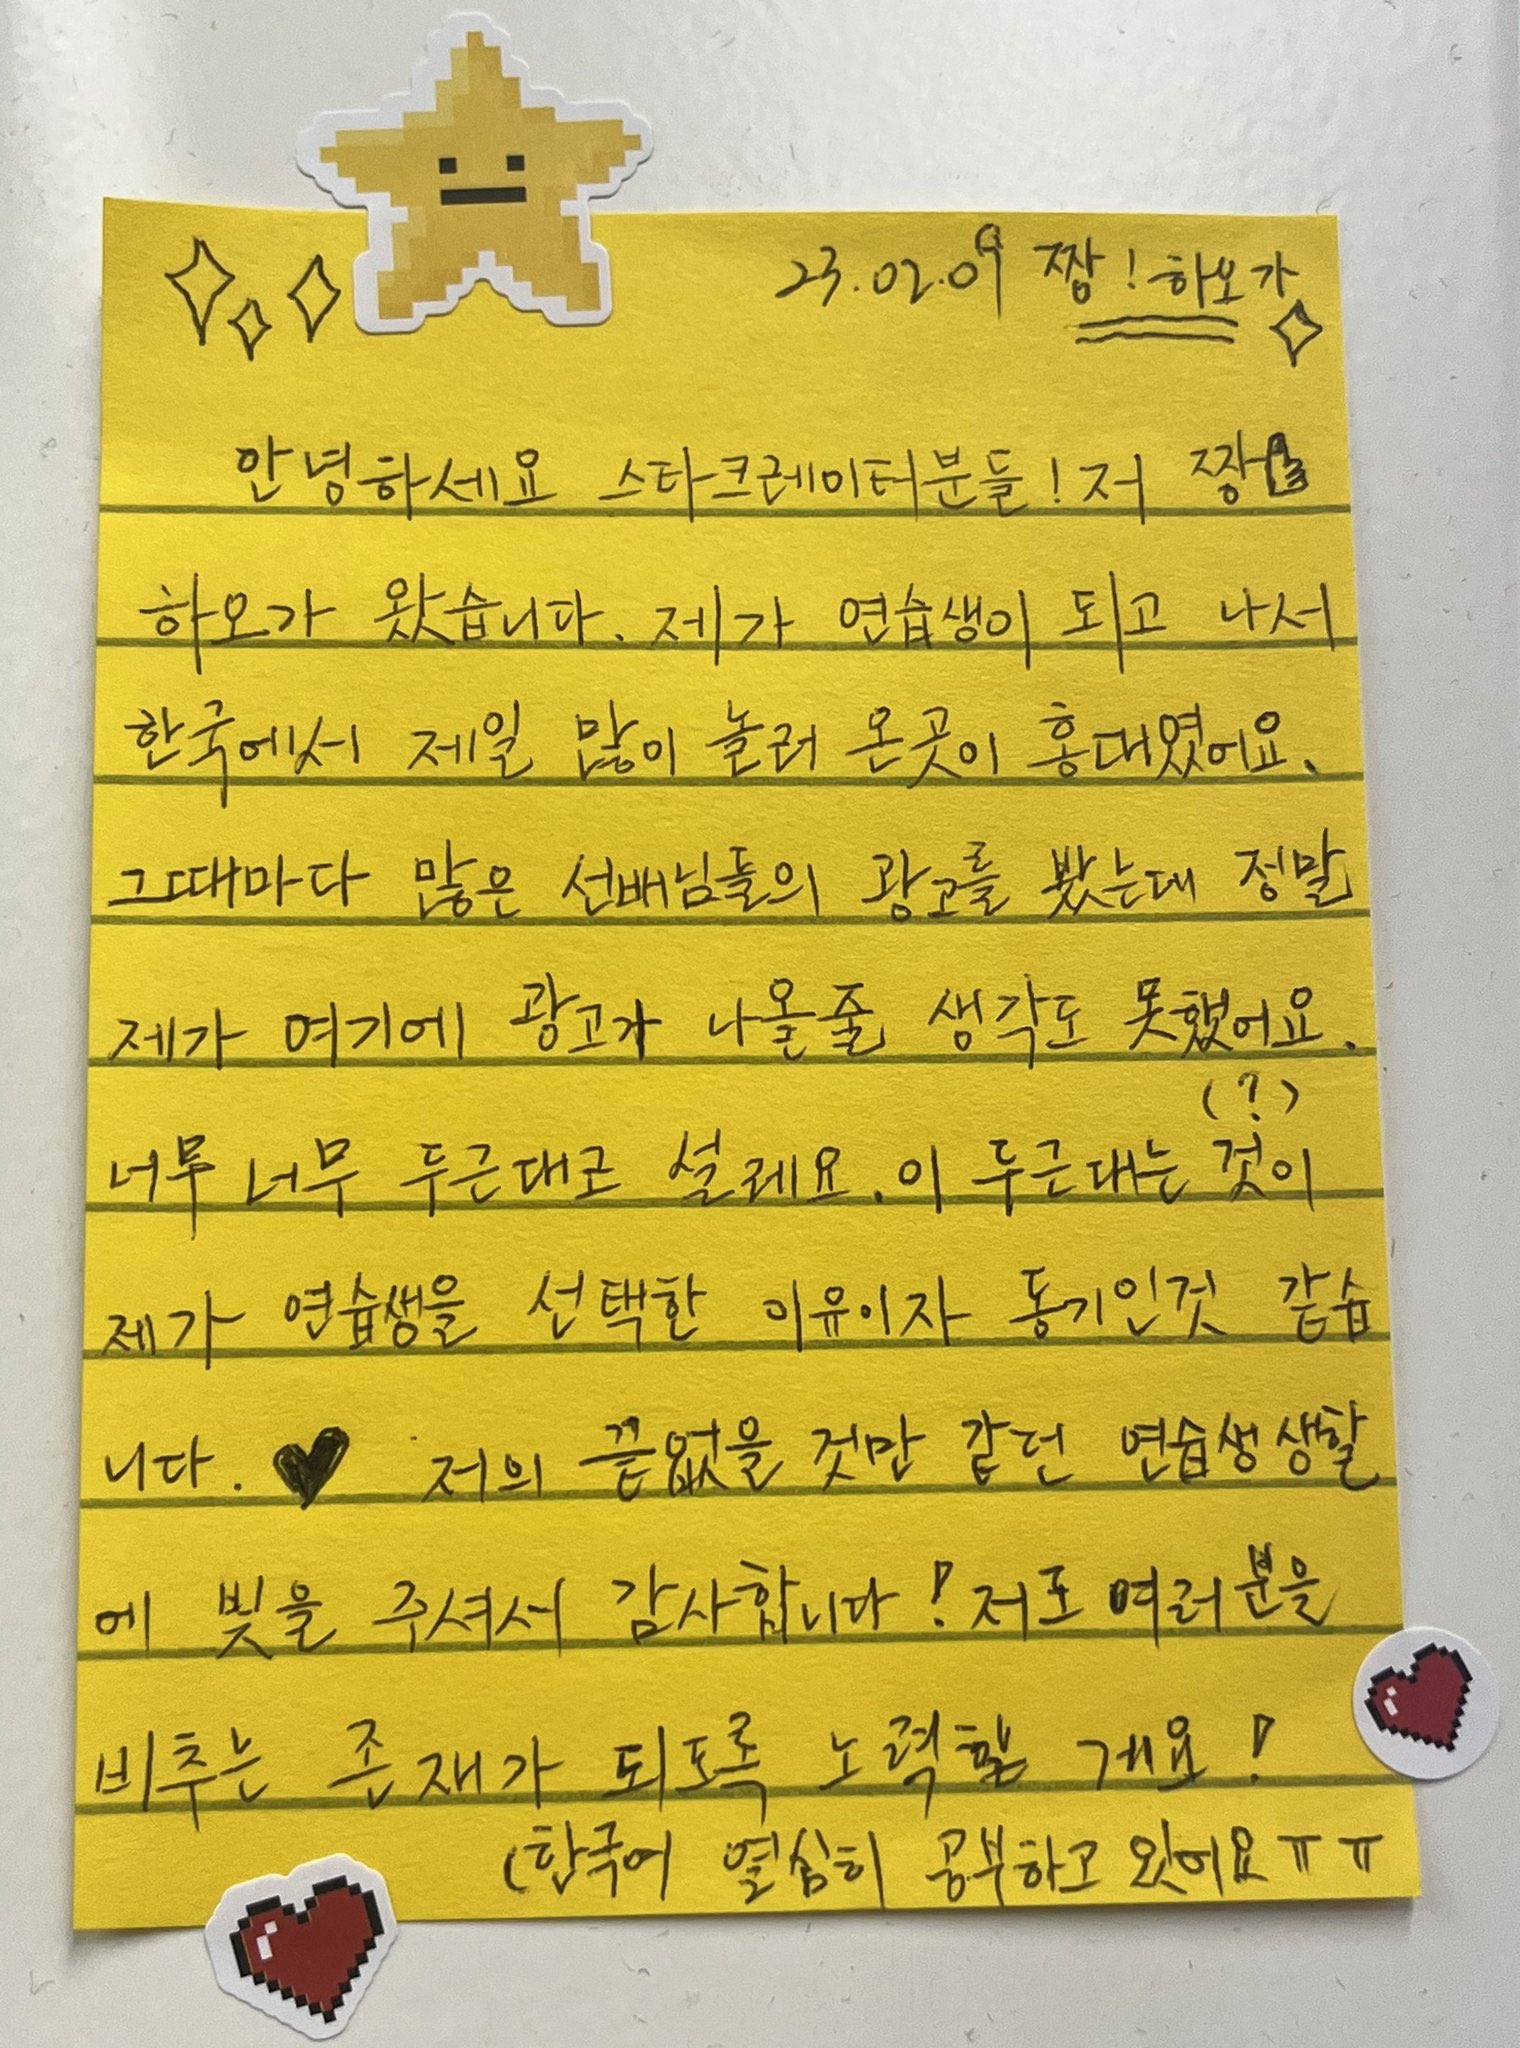 23.02.09 짱! 하오가
안녕하세요 스타크레이터분들! 저 짱
하오가 왔습니다. 제가 연습생이 되고 나서
한국에서 제일 많이 놀러 온곳이 홍대였어요.
그때마다 많은 선배님들의 광고를 봤는데 정말
제가 여기에 광고가 나올줄 생각도 못했어요.
(?)
너무 너무 두근대고 설레요. 이 두근대는 것이
제가 연습생을 선택한 이유이자 동기인것 같습
니다. ♥ 저의 끝없을 것만 같던 연습생 생활
에 빛을 주셔서 감사합니다! 저도 여러분을
비추는 존재가 되도록 노력할 게요!
(한국어 열심히 공부하고 왔어요ㅠㅠ